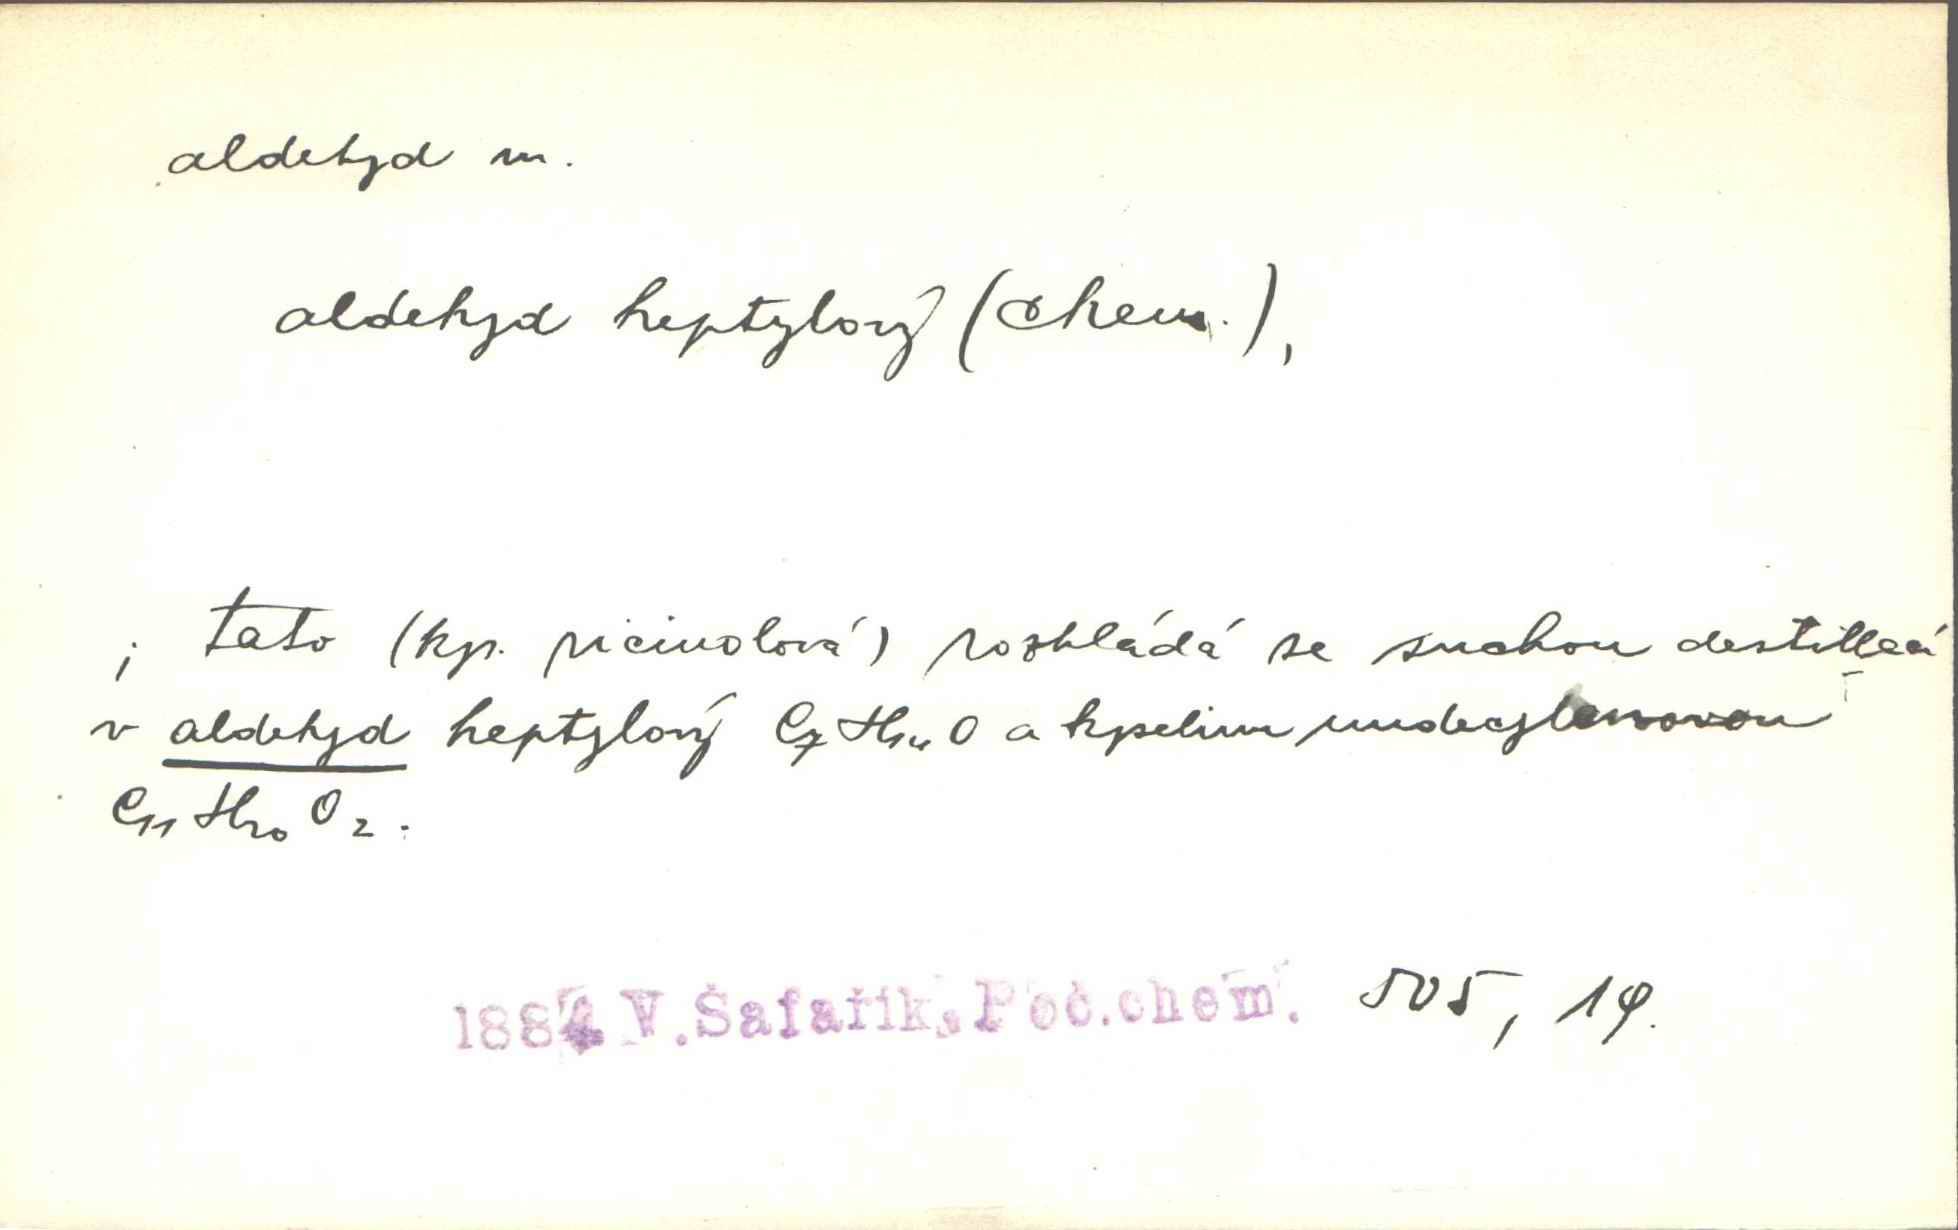 aldehyd m.
aldehyd heptylový (chem.),
; tato (kys. ricinolová) rozkládá se suchou destillací
v aldehyd heptylový C₇H₁₄O a kyselinu undecylenovou
C₁₁H₂₀O₂.
1884 V. Šafařík, Poč.chem. 505, 19.